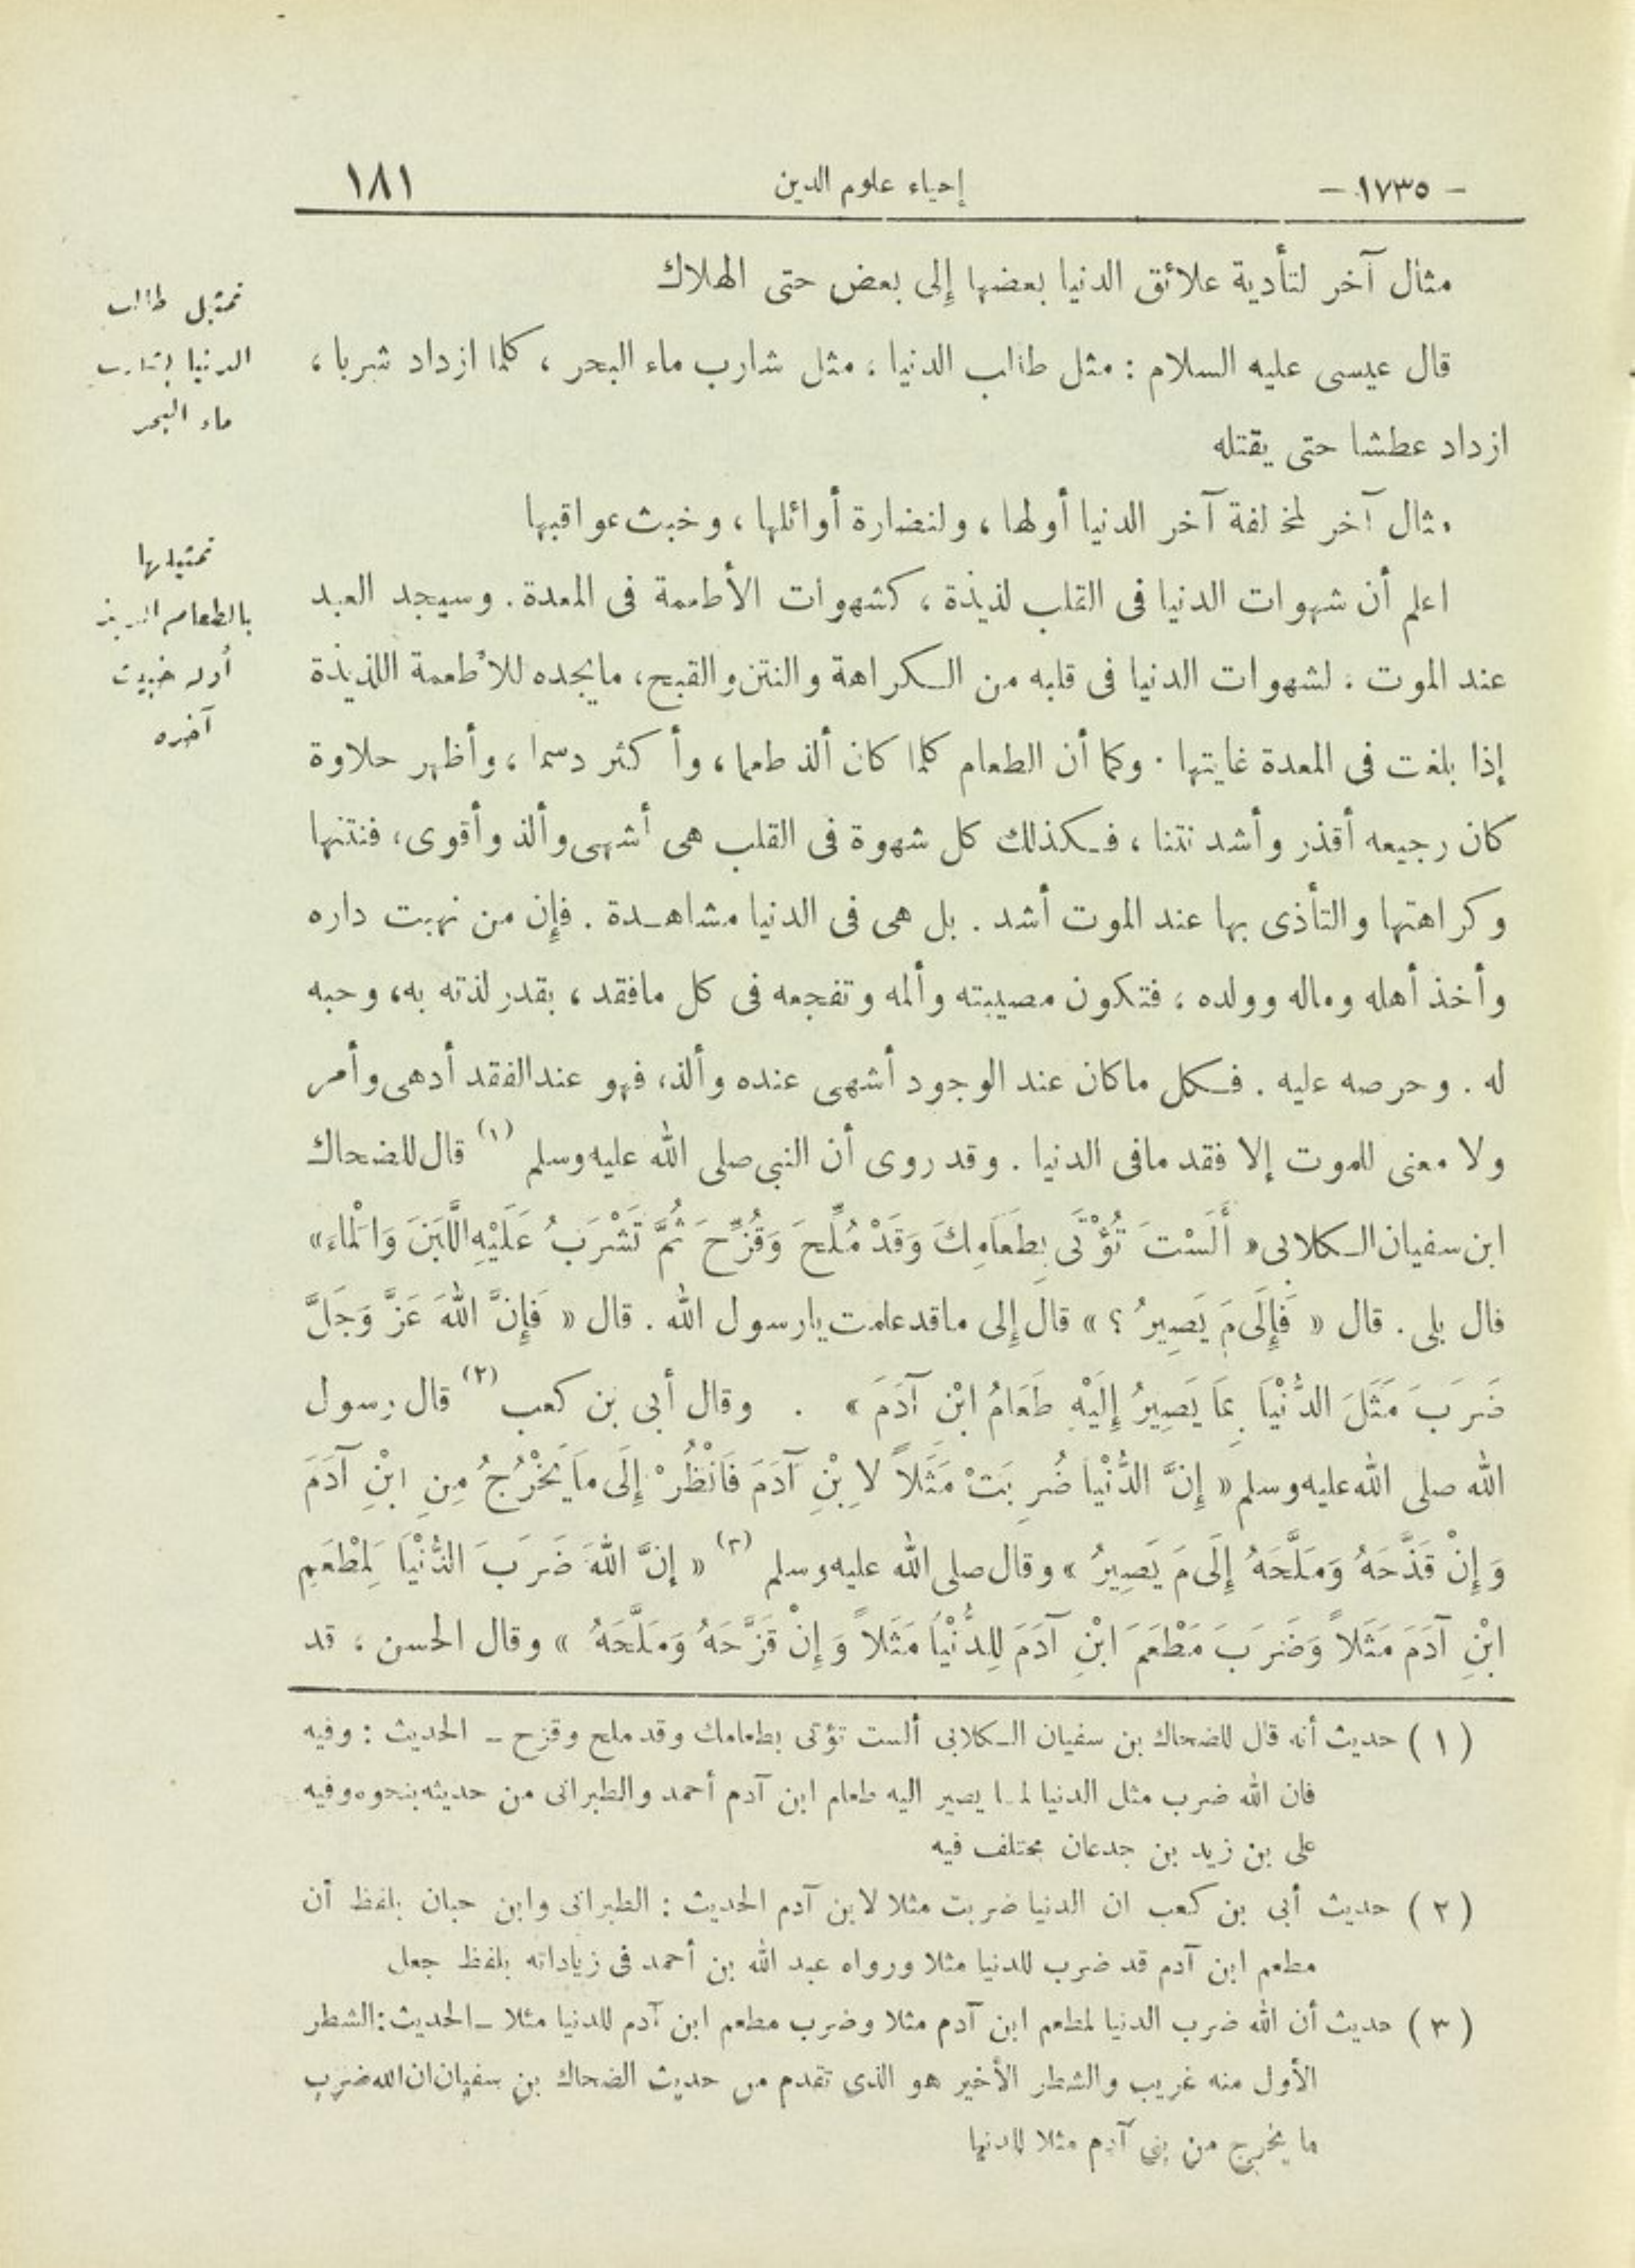 - ١٧٣٥ -
إحياء علوم الدين
١٨١
مثال آخر لتأدية علائق الدنيا بعضها إلى بعض حتى الهلاك
قال عيسى عليه السلام : مثل طالب الدنيا ، مثل شارب ماء البحر ، كلما ازداد شربا ،
ازداد عطشا حتى يقتله
مثال آخر لمخالفة آخر الدنيا أولها ، ولنضارة أوائلها ، وخبث عواقبها
اعلم أن شهوات الدنيا فى القلب لذيذة ، كشهوات الأطعمة فى المعدة . وسيجد العبد
عند الموت ، لشهوات الدنيا فى قلبه من الكراهة والنتن والقبح ، مايجده للأطعمة اللذيذة
إذا بلغت فى المعدة غايتها . وكما أن الطعام كلما كان ألذ طعما ، وأكثر دسما ، وأظهر حلاوة
كان رجيعه أقذر وأشد نتنا ، فكذلك كل شهوة فى القلب هى أشهى وألذ وأقوى ، فنتنها
وكراهتها والتأذى بها عند الموت أشد . بل هى فى الدنيا مشاهدة . فإن من نهبت داره
وأخذ أهله وماله وولده ، فتكون مصيبته وألمه وتفجعه فى كل مافقد ، بقدر لذته به ، وحبه
له . وحرصه عليه . فكل ماكان عند الوجود أشهى عنده وألذ ، فهو عند الفقد أدهى وأمر
ولا معنى للموت إلا فقد مافى الدنيا . وقد روى أن النبى صلى الله عليه وسلم (١) قال للضحاك
ابن سفيان الكلابى « أَلَسْتَ تُؤْتَى بِطَعَامِكَ وَقَدْ مُلِّحَ وَقُزِّحَ ثُمَّ تَشْرَبُ عَلَيْهِ اللَّبَنَ وَالْمَاءَ »
قال بلى . قال « فَإِلَى مَ يَصِيرُ ؟ » قال إلى ماقد علمت يارسول الله . قال « فَإِنَّ اللهَ عَزَّ وَجَلَّ
ضَرَبَ مَثَلَ الدُّنْيَا بِمَا يَصِيرُ إِلَيْهِ طَعَامُ ابْنِ آدَمَ » . وقال أبى بن كعب (٢) قال رسول
الله صلى الله عليه وسلم « إِنَّ الدُّنْيَا ضُرِبَتْ مَثَلاً لِابْنِ آدَمَ فَانْظُرْ إِلَى مَا يَخْرُجُ مِنِ ابْنِ آدَمَ
وَإِنْ قَذَّحَهُ وَمَلَّحَهُ إِلَى مَ يَصِيرُ » وقال صلى الله عليه وسلم (٣) « إنَّ اللهَ ضَرَبَ الدُّنْيَا لِمَطْعَمِ
ابْنِ آدَمَ مَثَلاً وَضَرَبَ مَطْعَمَ ابْنِ آدَمَ لِلدُّنْيَا مَثَلاً وَإِنْ قَزَّحَهُ وَمَلَّحَهُ » وقال الحسن ، قد
تمثيل طالب
الدنيا بشارب
ماء البحر
تمثيلها
بالطعام
أوله خبيث
آخره
( ١ ) حديث أنه قال للضحاك بن سفيان الكلابى ألست تؤتى بطعامك وقد ملح وقزح - الحديث : وفيه
فان الله ضرب مثل الدنيا لما يصير اليه طعام ابن آدم أحمد والطبرانى من حديثه بنحوه وفيه
على بن زيد بن جدعان مختلف فيه
( ٢ ) حديث أبى بن كعب ان الدنيا ضربت مثلا لابن آدم الحديث : الطبرانى وابن حبان بلفظ أن
مطعم ابن آدم قد ضرب للدنيا مثلا ورواه عبد الله بن أحمد فى زياداته بلفظ جعل
( ٣ ) حديث أن الله ضرب الدنيا لمطعم ابن آدم مثلا وضرب مطعم ابن آدم للدنيا مثلا - الحديث : الشطر
الأول منه غريب والشطر الأخير هو الذى تقدم من حديث الضحاك بن سفيان ان الله ضرب
ما يخرج من بنى آدم مثلا للدنيا